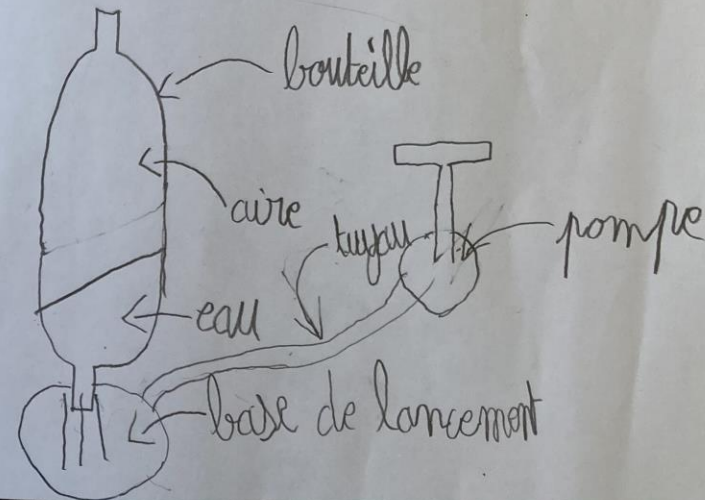 bouteille
aire
tuyau
pompe
eau
base de lancement